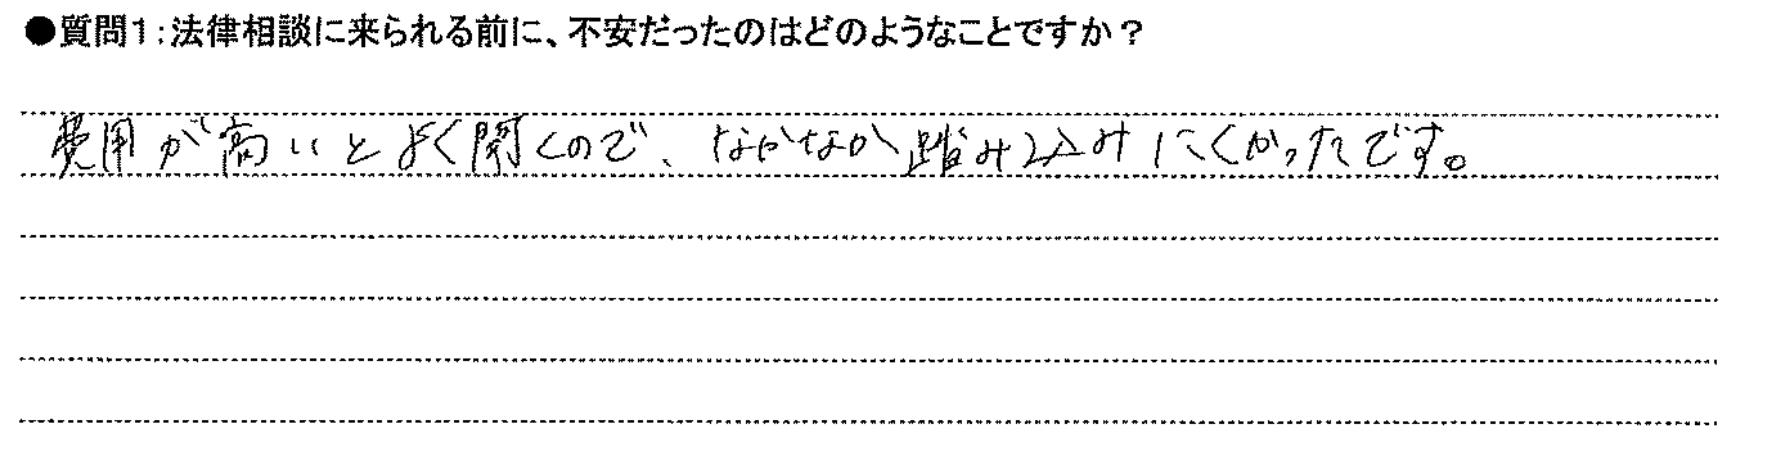 ●質問1:法律相談に来られる前に、不安だったのはどのようなことですか?
費用が高いとよく聞くので、なかなか踏み込みにくかったです。